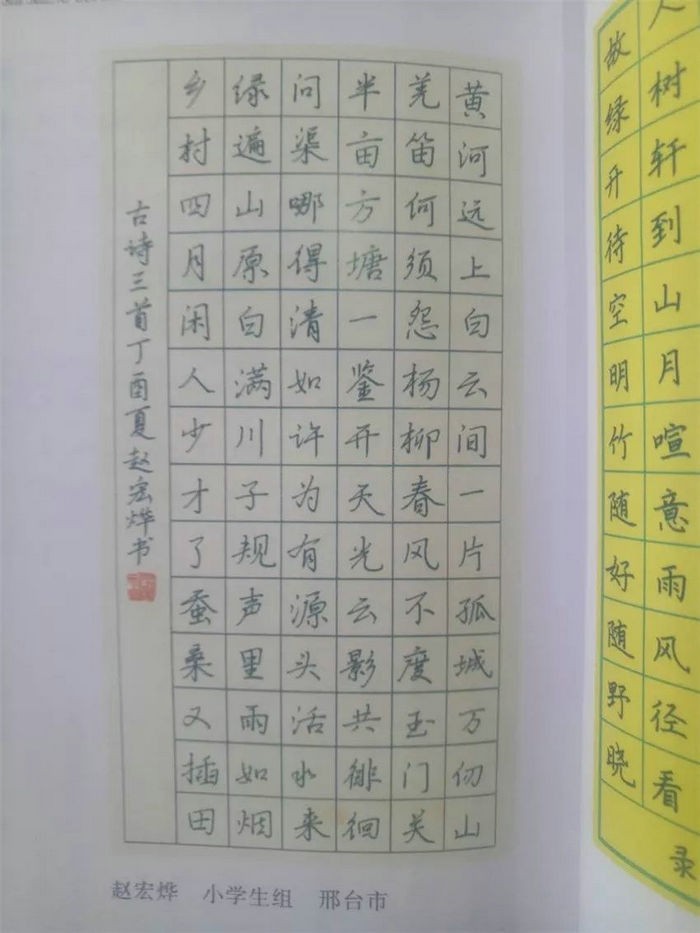 黄河远上白云间一片孤城万仞山
羌笛何须怨杨柳春风不度玉门关
半亩方塘一鉴开天光云影共徘徊
问渠哪得清如许为有源头活水来
绿遍山原白满川子规声里雨如烟
乡村四月闲人少才了蚕桑又插田
古诗三首丁酉夏赵宏烨书
赵宏烨 小学生组 邢台市
人树轩到山月喧意雨风径看
故绿开待空明竹随好随野晓
录